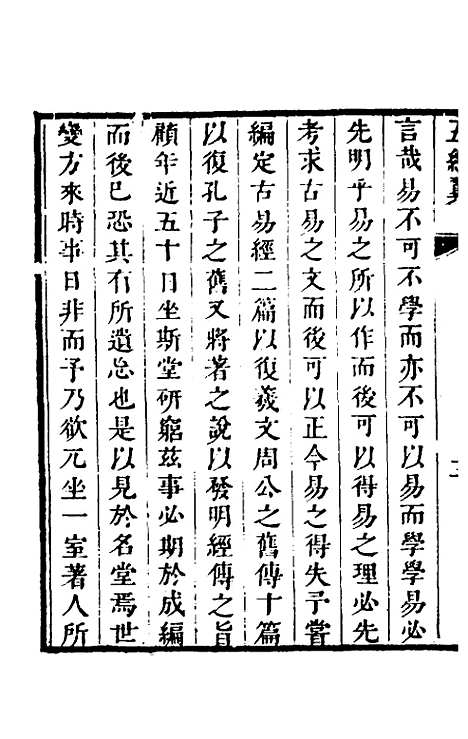 五經翼
言哉易不可不學而亦不可以易而學學易必
先明乎易之所以作而後可以得易之理必先
考求古易之文而後可以正今易之得失予嘗
編定古易經二篇以復羲文周公之舊傳十篇
以復孔子之舊又將著之說以發明經傳之旨
顧年近五十日坐斯堂研窮茲事必期於成編
而後已恐其有所遺忘也是以見於名堂焉世
變方來時事日非而予乃欲兀坐一室著人所